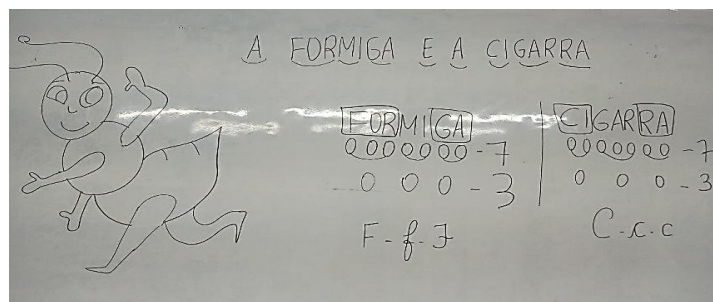 A FORMIGA E A CIGARRA
FORMIGA
0000000-7
0 0 0 - 3
F - f - F
CIGARRA
0000000-7
0 0 0 - 3
C - c - c